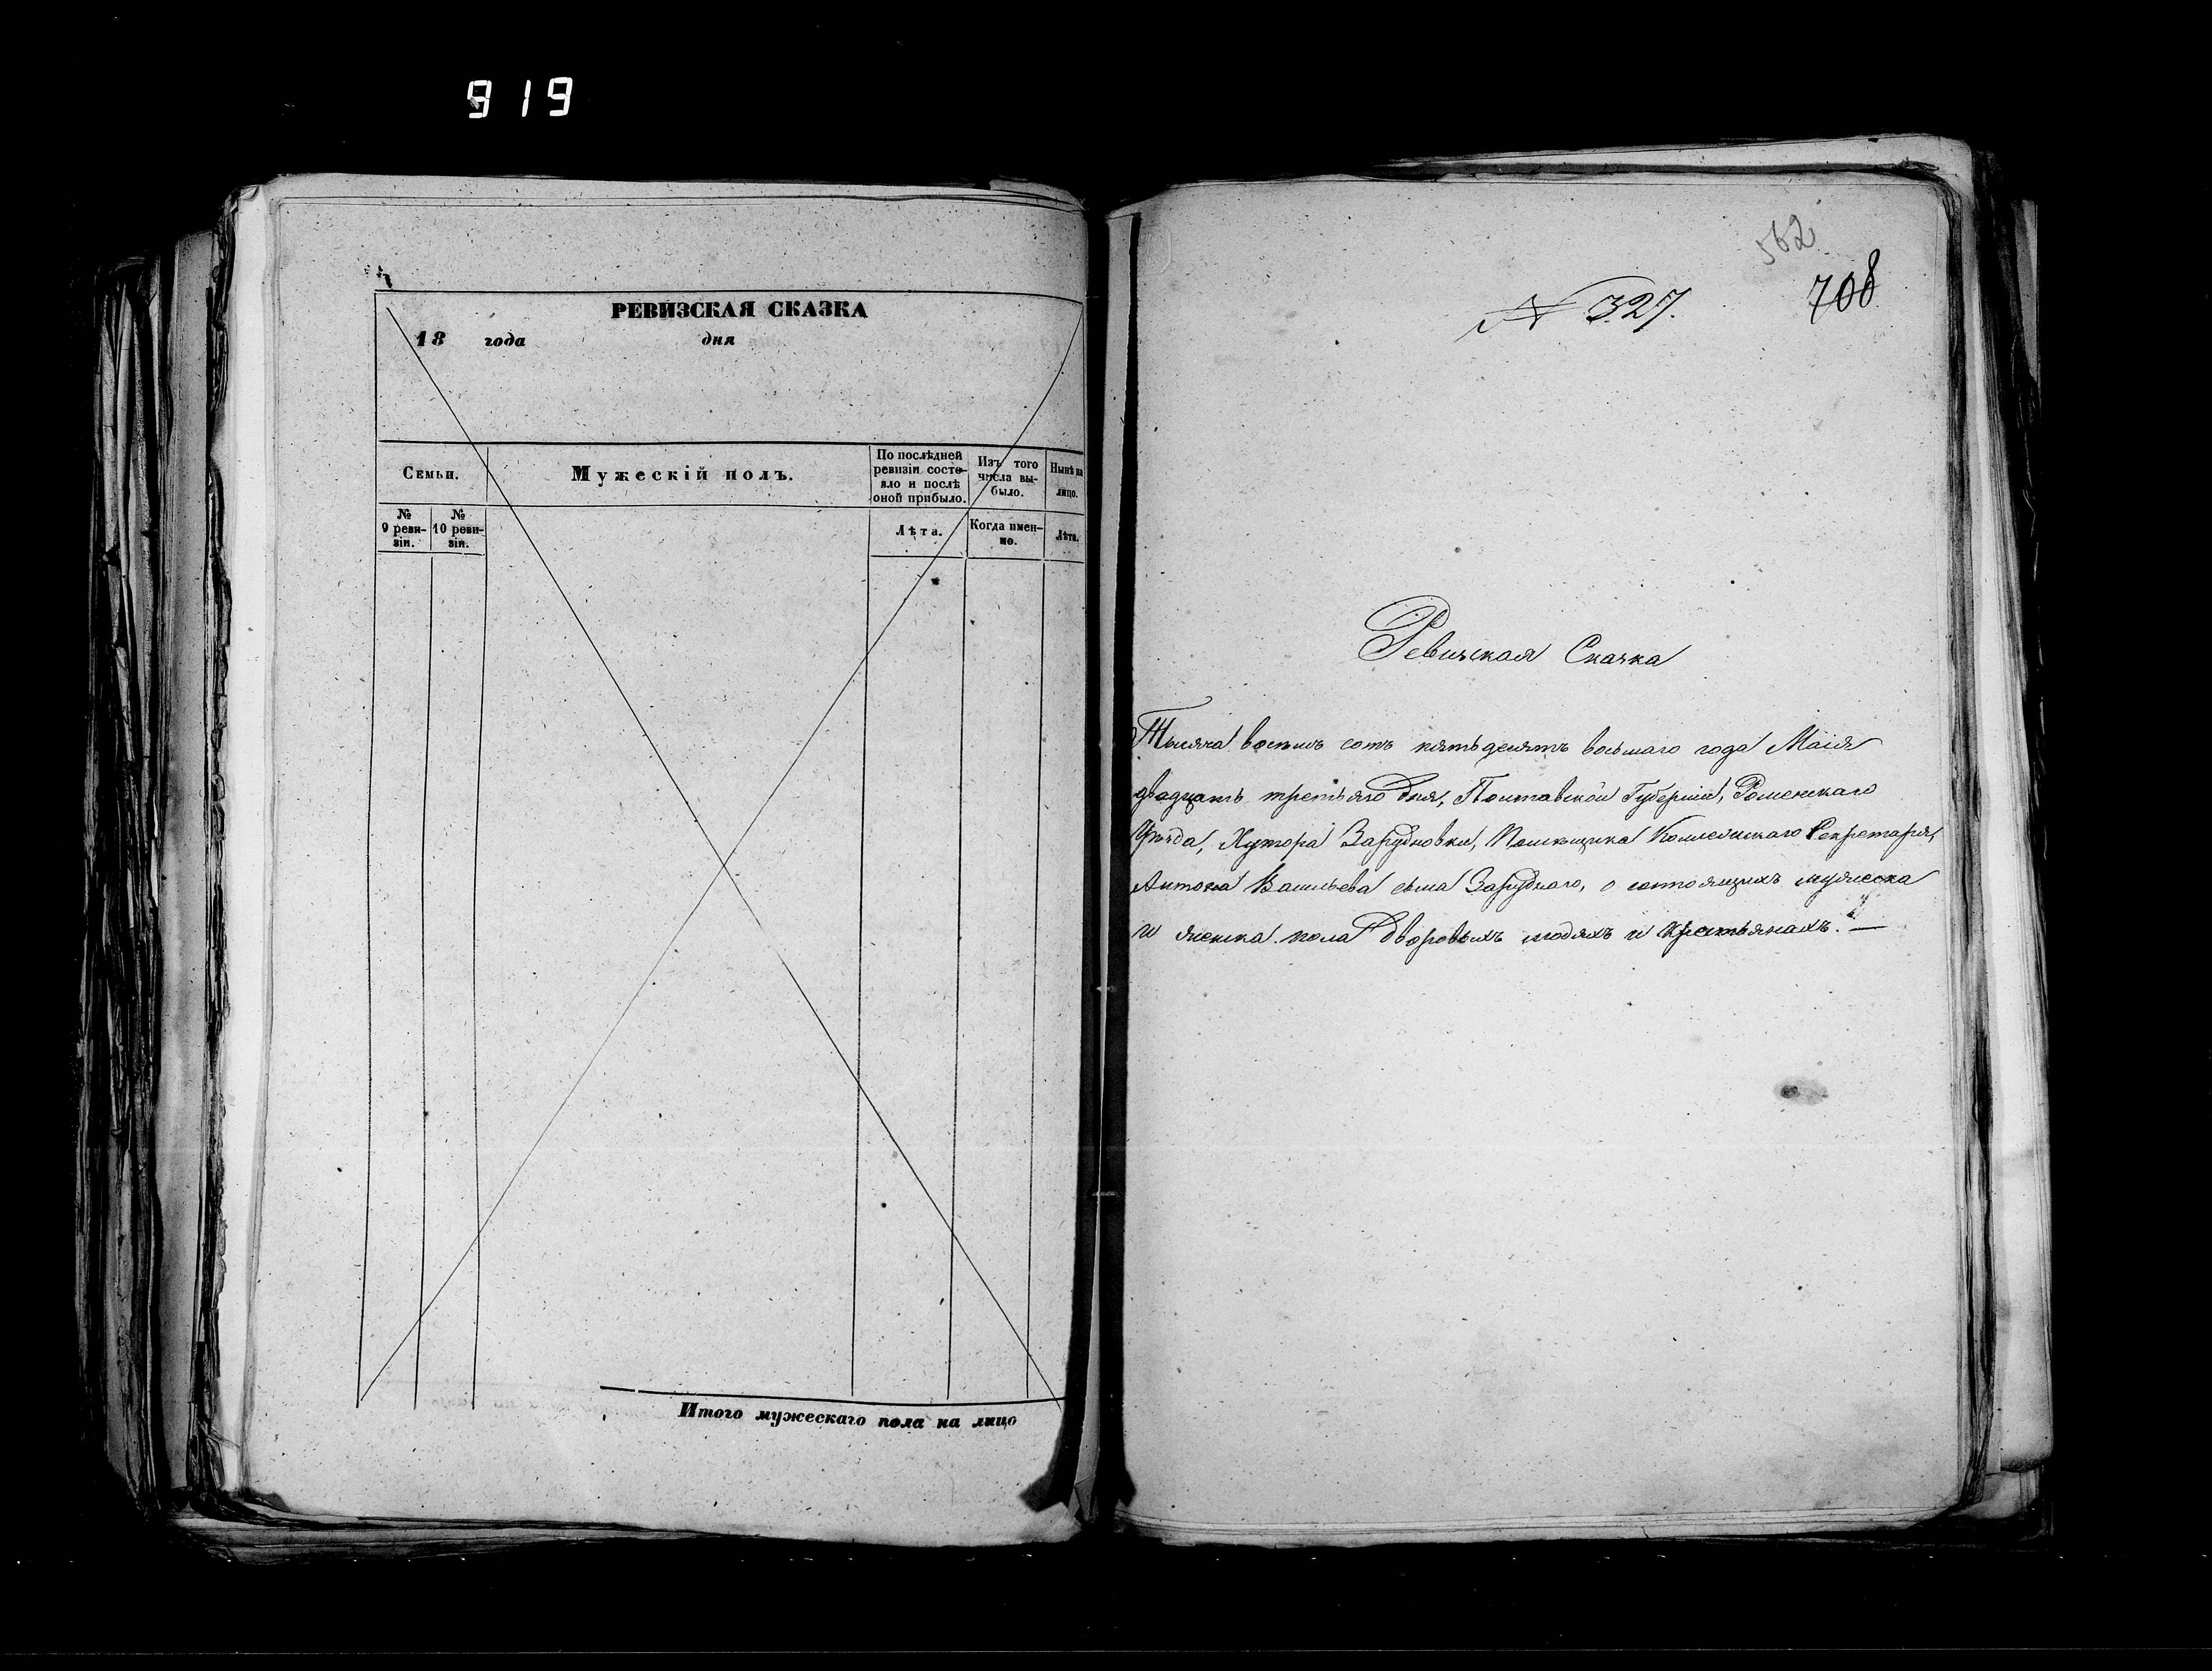 919
РЕВИЗСКАЯ СКАЗКА
18 года дня
Семьи.
Мужескій полъ.
По послѣдней ревизіи состояло и послѣ оной прибыло.
Изъ того числа выбыло.
Нынѣ на лицо.
№ 9 ревизіи.
№ 10 ревизіи.
Лѣта.
Когда именно.
Лѣта.
Итого мужескаго пола на лицо
562
№ 327.
708
Ревизская Сказка
Тысяча восемь сотъ пятьдесятъ восьмаго года Маія
двадцать третьяго дня, Полтавской Губерніи, Роменскаго
Уѣзда, Хутора Зарудновки, Помѣщика Коллежскаго Секретаря,
Антона Васильева сына Заруднаго, о состоящихъ мужеска
и женска пола дворовыхъ людяхъ и крестьянахъ. —